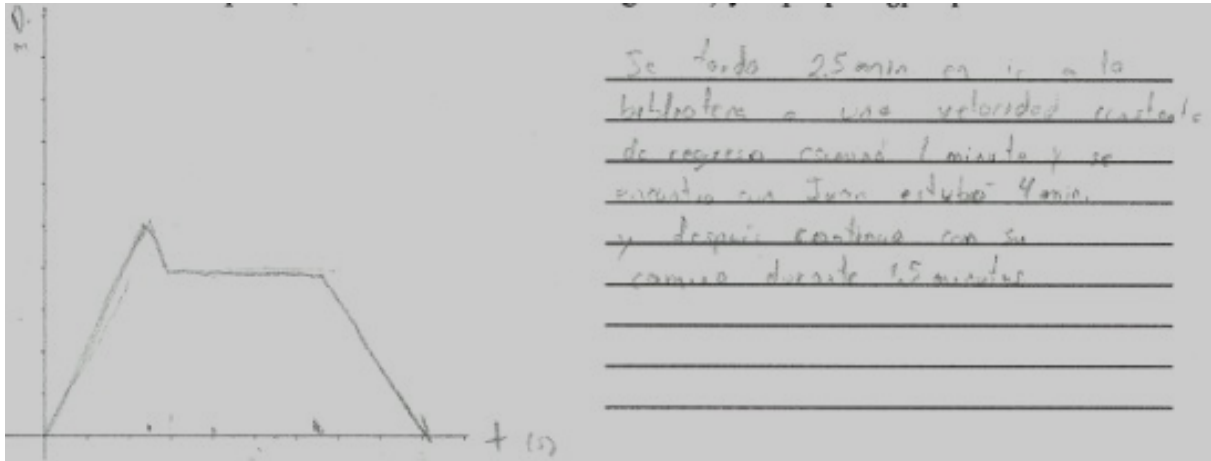 D.
m
Se tardo 2.5 min en ir a la
biblioteca a una velocidad constante
de regreso camino 1 minuto y se
encontro con Juan estubo 4 min.
y despues continuo con su
camino durante 1.5 minutos
t (s)